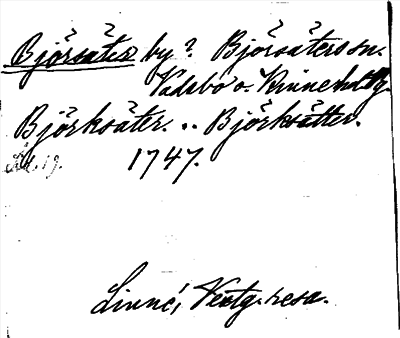 Björsäter by? Björsäters sn.
Vadsbo o. Kinne
Björksäter. .. Björksätter.
1747.
Linné, Vestg. resa.